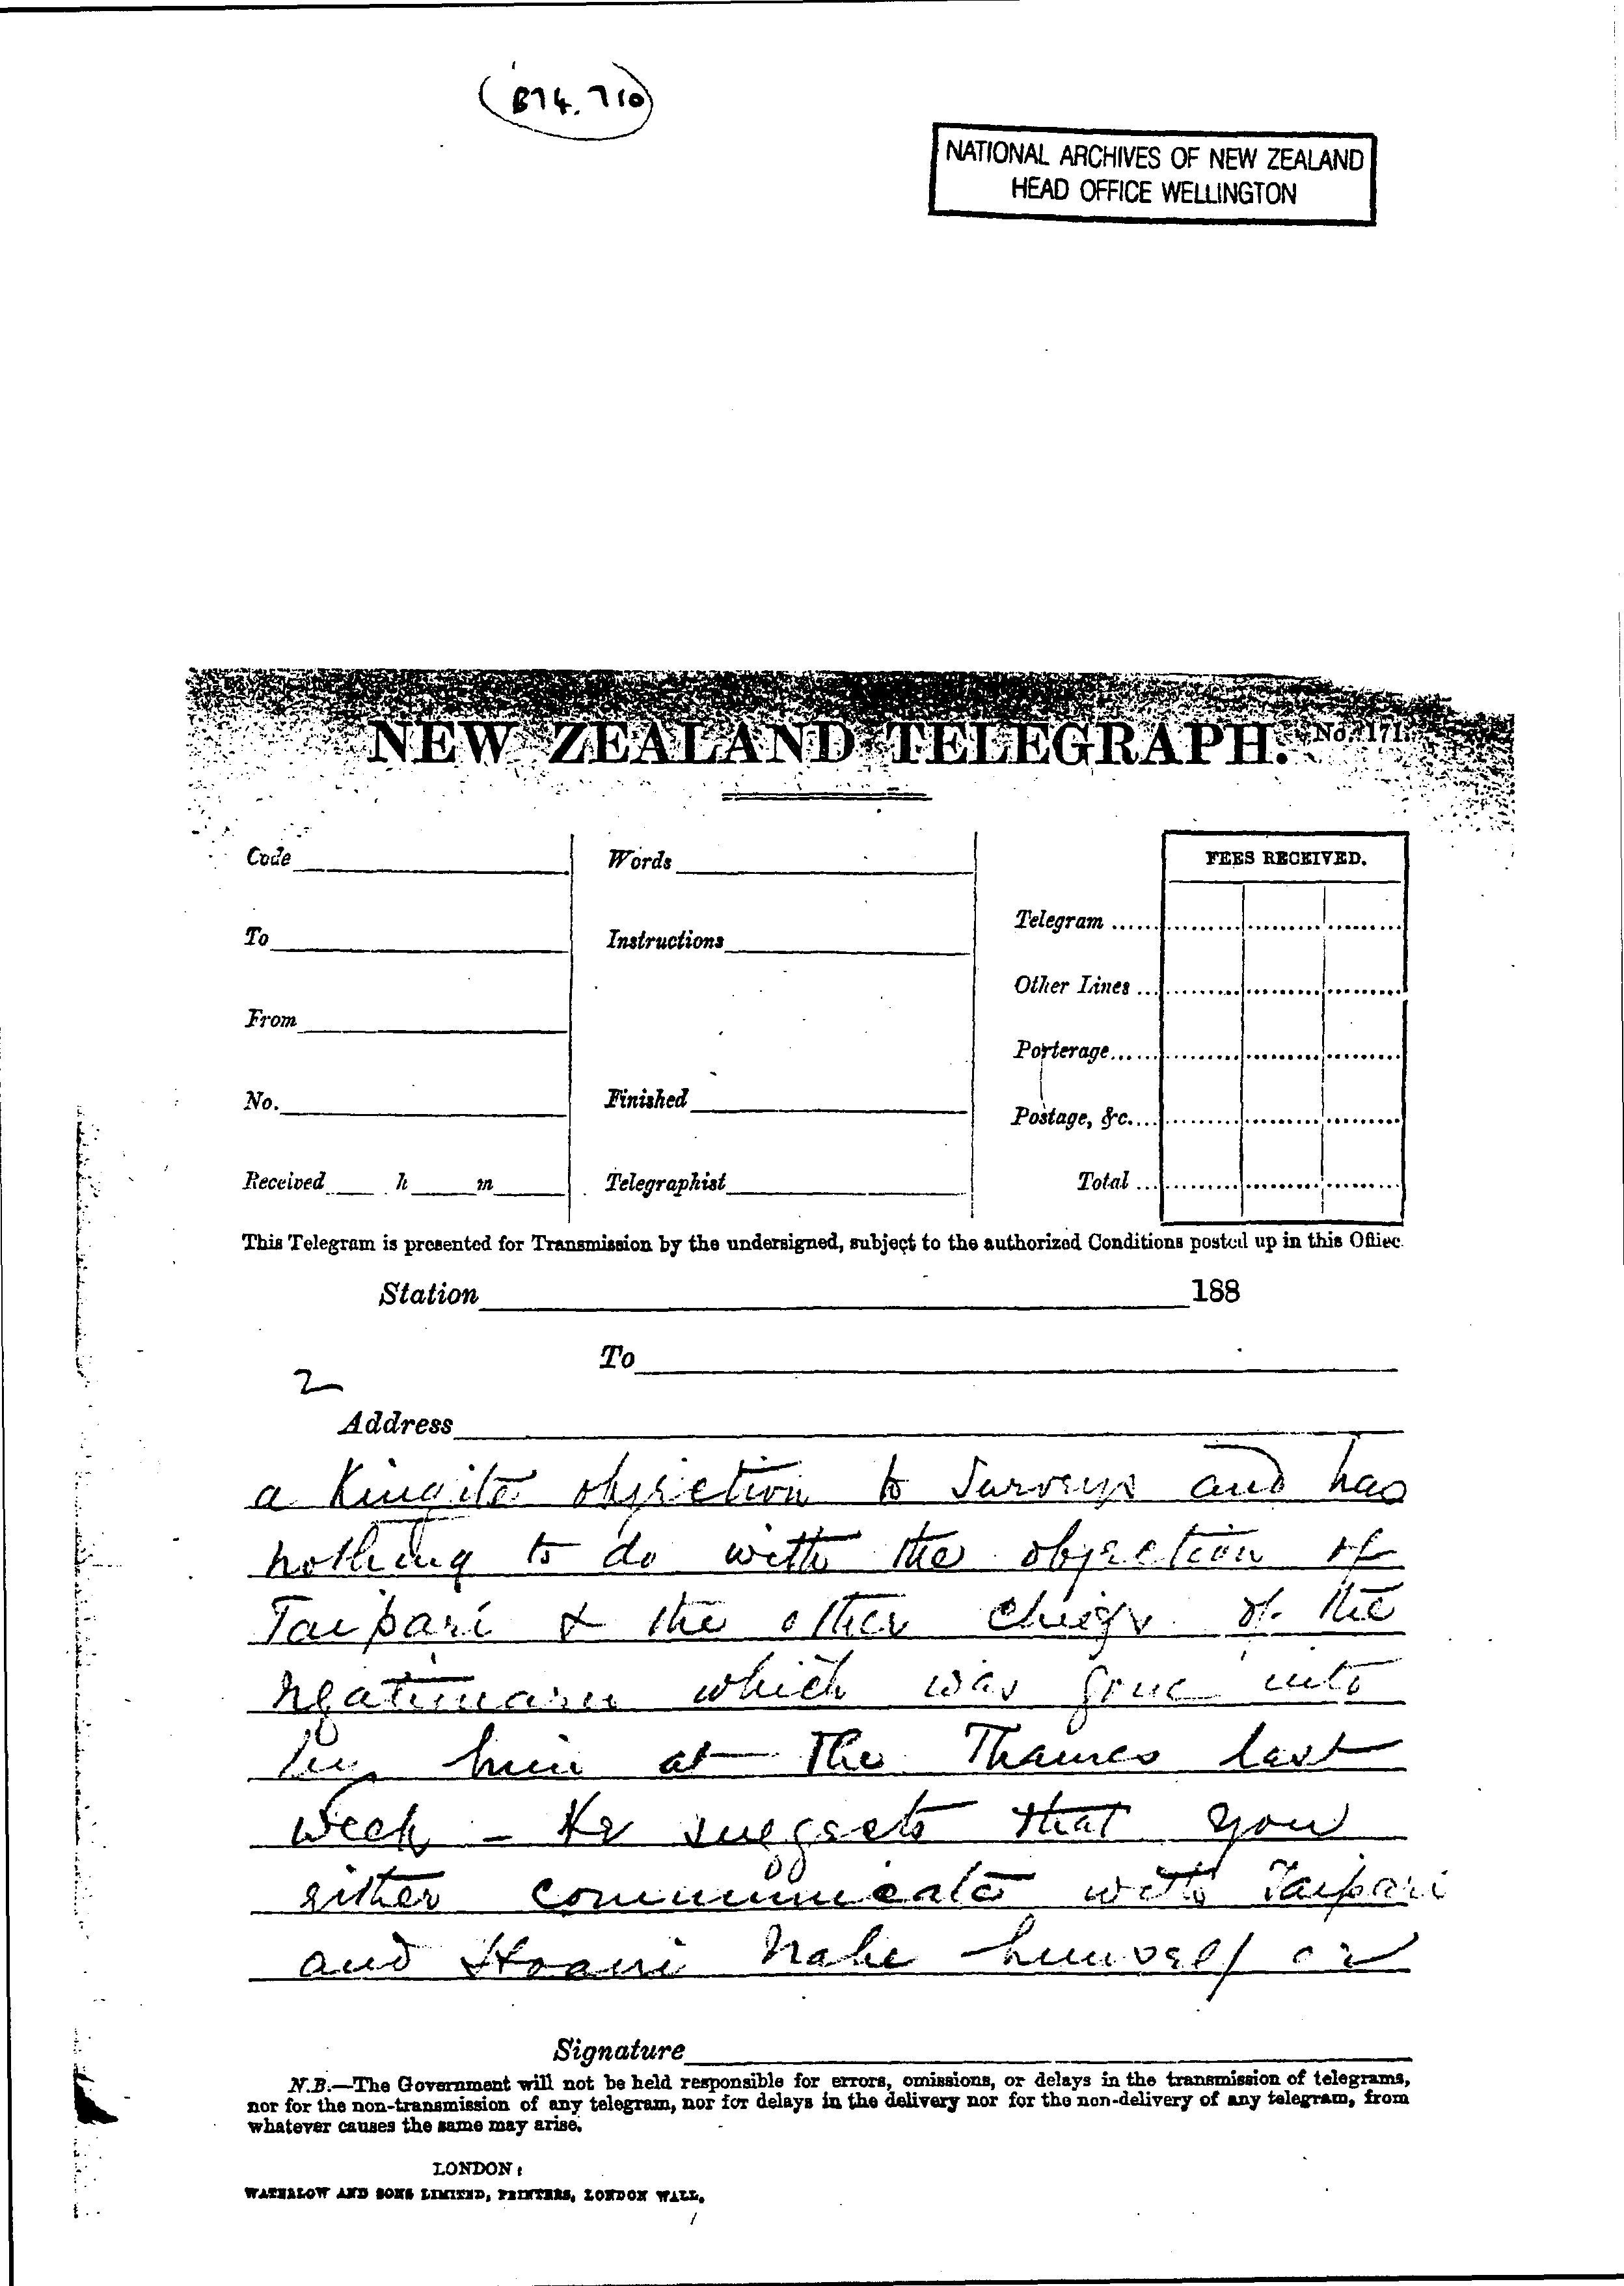 (B74.710)
NATIONAL ARCHIVES OF NEW ZEALAND
HEAD OFFICE WELLINGTON
NEW ZEALAND TELEGRAPH. No. 171.
Code
Words
FEES RECEIVED.
Telegram ......
To
Instructions
Other Lines ...
From
Porterage......
No.
Finished
Postage, &c....
Received h m
Telegraphist
Total ...
This Telegram is presented for Transmission by the undersigned, subject to the authorized Conditions posted up in this Office.
Station 188
To
2
Address
a Kingite objection to Surveys and has
nothing to do with the objection of
Taipari & the other chiefs of the
Ngatimaru which was gone into
by him at the Thames last
week - He suggests that you
either communicate with Taipari
and Hoani Nahe himself or
Signature
N.B.—The Government will not be held responsible for errors, omissions, or delays in the transmission of telegrams,
nor for the non-transmission of any telegram, nor for delays in the delivery nor for the non-delivery of any telegram, from
whatever causes the same may arise.
LONDON:
WATERLOW AND SONS LIMITED, PRINTERS, LONDON WALL.